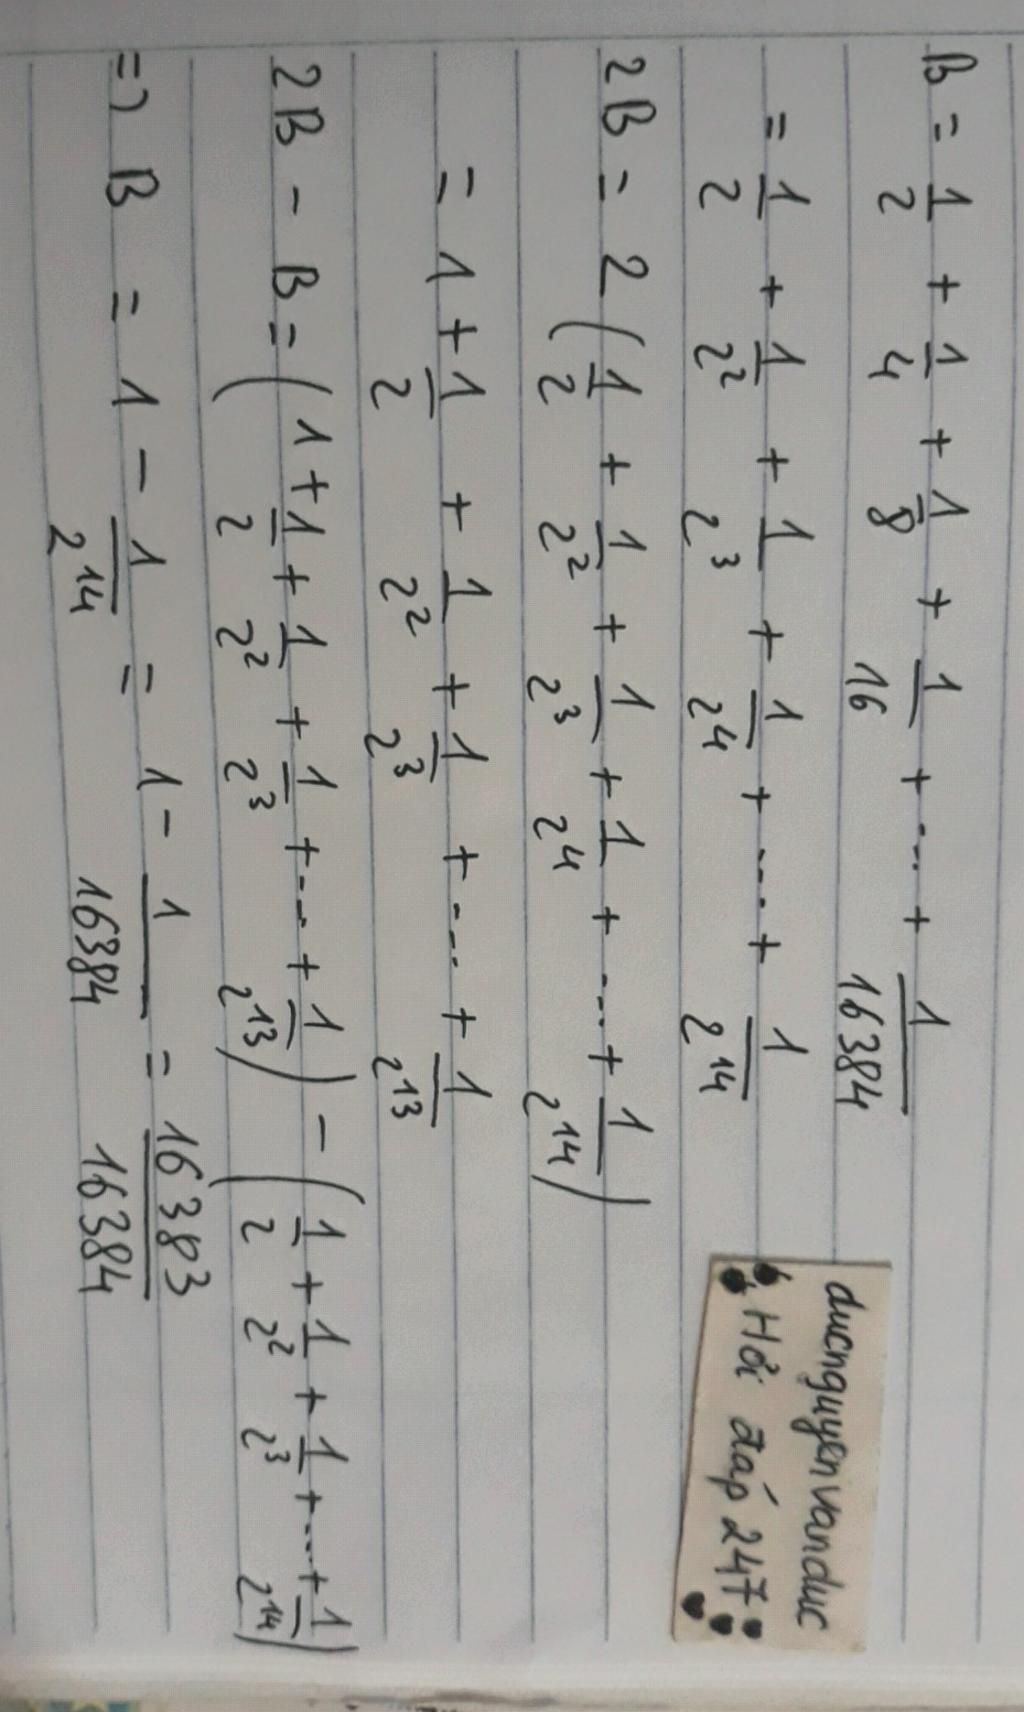 B = 1/2 + 1/4 + 1/8 + 1/16 + ... + 1/16384
= 1/2 + 1/2² + 1/2³ + 1/2⁴ + .... + 1/2¹⁴
2B = 2 (1/2 + 1/2² + 1/2³ + 1/2⁴ + .... + 1/2¹⁴)
= 1 + 1/2 + 1/2² + 1/2³ + .... + 1/2¹³
2B - B = (1 + 1/2 + 1/2² + 1/2³ + .... + 1/2¹³) - (1/2 + 1/2² + 1/2³ + .... + 1/2¹⁴)
=> B = 1 - 1/2¹⁴ = 1 - 1/16384 = 16383/16384
ducnguyenvanduc
Hỏi đáp 247